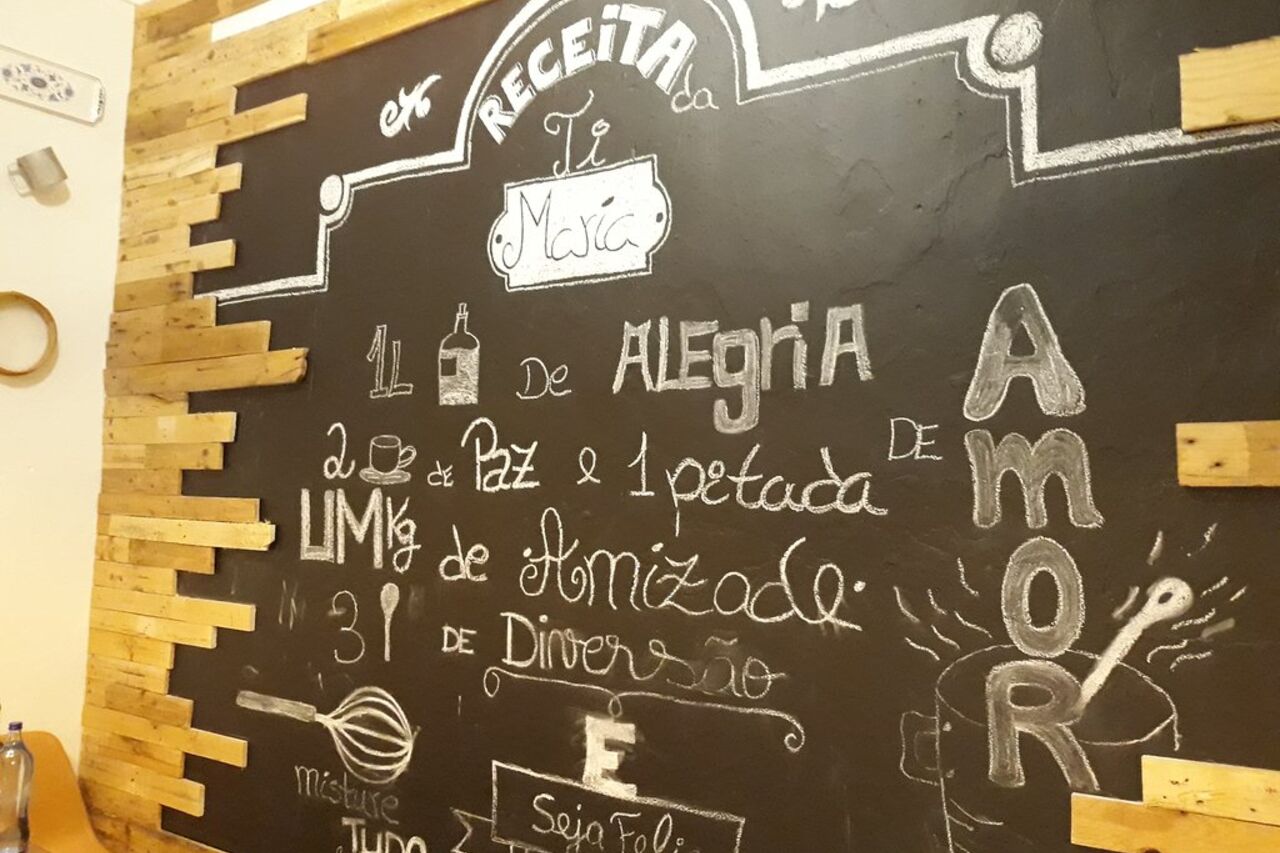 RECEITA da
Ti
Maria
1L De ALEgriA
2 de Paz e 1 pitada DE AmOR
UM Kg de Amizade
3 DE Diversão
E
misture
TUDO
Seja Feliz